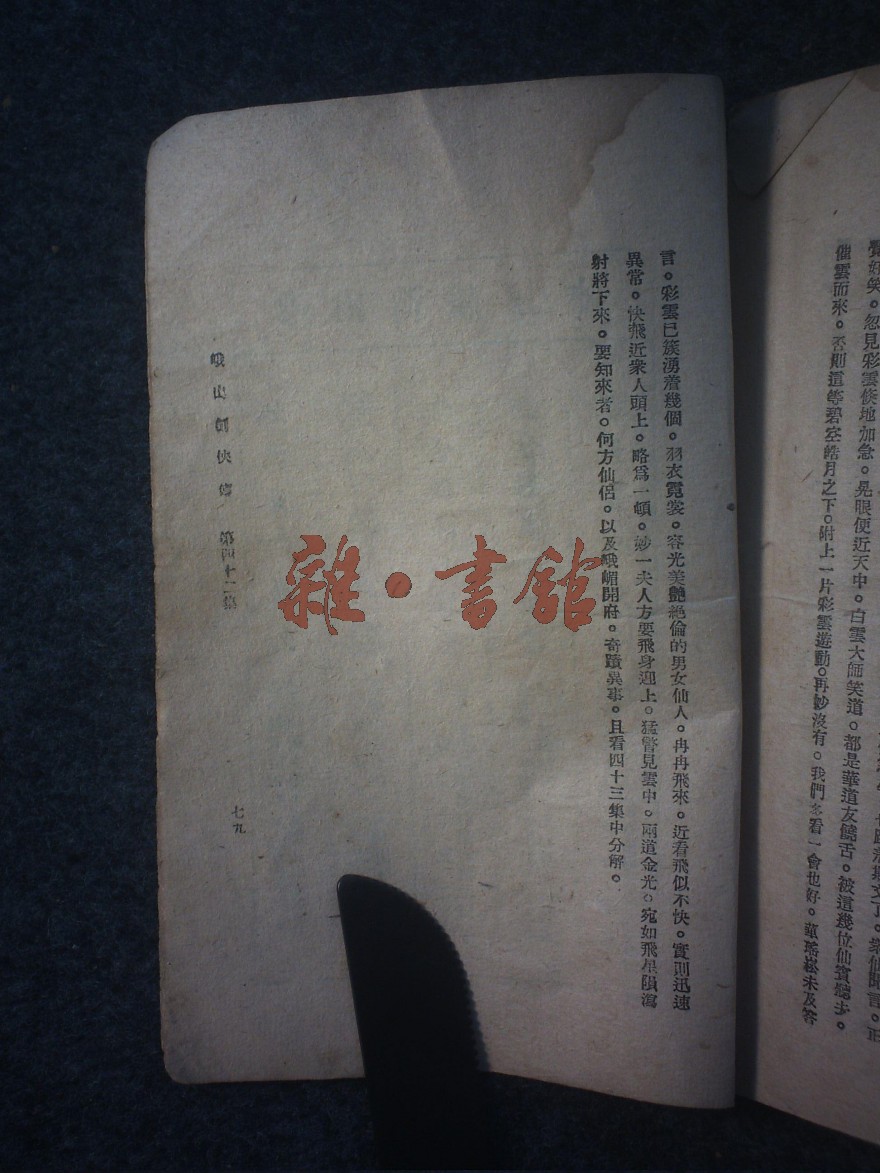 覺好笑。忽見彩雲倏地加急。晃眼便近天中。白雲大師笑道。都是華道友饒舌。被這幾位仙賓聽去。
催雲而來。否則這等碧空皓月之下。附上一片彩雲遊動。再妙沒有。我們多看一會也好。葉瑤崧未及答
言。彩雲已簇湧着幾個。羽衣霓裳。容光美艷絕倫的男女仙人。冉冉飛來。近看飛似不快。實則迅速
異常。快飛近衆人頭上。略爲一頓。妙一夫人方要飛身迎上。猛瞥見雲中。兩道金光。宛如飛星隕瀉
射將下來。要知來者。何方仙侶。以及峨嵋開府。奇蹟異事。且看四十三集中分解。
峨山劍俠傳 第四十二集
七九
雜·書館